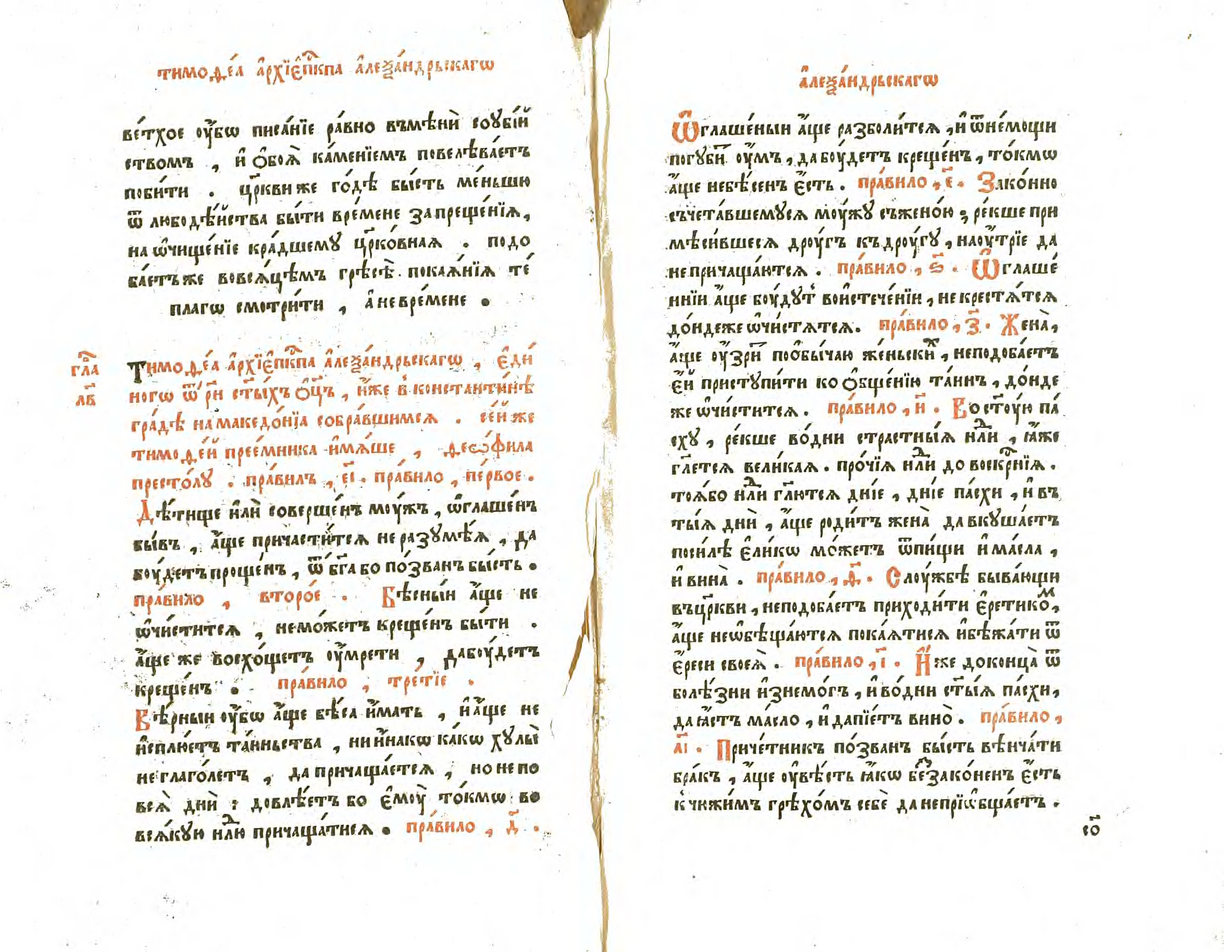 тимоѳе́а а҆рхїепⷭ҇кпа а҆леѯа́ндрьскагѡ
ве́тхое ᲂу҆́бѡ писа́нїе ра́вно въмѣнѝ сᲂуб́ій
ствомъ , и҆ ѻ҆боѧ̀ ка́менїемъ повелѣва́етъ
поби́ти . цр҃кви же го́дѣ бы́сть ме́ньшю
ѿ любодѣ́йства бы́ти вре́мене запреще́нїѧ,
на ѡ҆чище́нїе кра́дшемꙋ цр҃ко́внаѧ . подо
ба́етъже вовсѧ́цѣмъ грѣсѣ̀ покаѧ́нїѧ те́
плагѡ смотри́ти , а҆ невре́мене .
гла҃
лв҃
Тимоѳе́а а҆рхїепⷭ҇кпа а҆леѯа́ндрьскагѡ , є҆ди́
ногѡ ѿ р҃н ст҃ы́хъ ѻ҆ц҃ъ , и҆́же в константи́нѣ
гра́дѣ намакедо́нїа собра́вшимсѧ . се́й же
тимоѳе́й прее́мника и҆мѧ́ше , ѳеѡ́фила
престо́лꙋ . пра́вилъ , є҃і . пра́вило , пе́рвое .
Дѣ́тище и҆лѝ соверше́нъ мᲂу́жъ , ѡ҆глаше́нъ
бы́въ , а҆́ще причасти́тсѧ не разꙋмѣ́ѧ , да
бᲂу́детъ проще́нъ , ѿ бг҃а бо по́званъ бы́сть .
пра́вило , второ́е . Бѣ́сныи а҆́ще не
ѡ҆чи́ститсѧ , немо́жетъ креще́нъ бы́ти .
а҆́ще же восхо́щетъ ᲂу҆мре́ти , дабᲂу́детъ
креще́нъ . пра́вило , тре́тїе .
Вѣ́рныи ᲂу҆́бѡ а҆́ще бѣ́са и҆́мать , и҆ а҆́ще не
и҆сплюе́тъ та́иньства , ни и҆́накѡ ка́кѡ хꙋ́лы̀
не глаго́летъ , да причаща́етсѧ , но не по
всѧ̀ дни̑ : довлѣ́етъ бо є҆мᲂу̀ то́кмѡ во
всѧ́кꙋю нлⷣю причаща́тисѧ . пра́вило , д҃ .
а҆леѯа́ндрьскагѡ
Ѡ҆глаше́ныи а҆́ще разболи́тсѧ , и҆ ѿне́мощи
погꙋби́т ᲂу҆́мъ , да бᲂу́детъ креще́нъ , то́кмѡ
а҆́ще небѣ́сенъ є҆́сть . пра́вило , є҃ . Зако́нно
съчета́вшемꙋсѧ мᲂу́жꙋ съжено́ю ; ре́кше при
мѣси́вшесѧ дрᲂу́гъ къ дрᲂу́гꙋ , наᲂу҆́трїе да
не причаща́ютсѧ . пра́вило , ѕ҃ . Ѡ҆глаше́
нїи а҆́ще бᲂу́дꙋт во и҆стече́нїи , не крестѧ́тсѧ
до́ндеже ѡ҆чи́стѧтсѧ . пра́вило , з҃ . Жена̀ ,
а҆́ще ᲂу҆́зри́т поѻ҆бы́чаю же́ньскиⷨ , неподоба́етъ
є҆́й приступи́ти ко ѻ҆бще́нїю та́инъ , до́нде
же ѡ҆чи́стится . пра́вило , и҃ . Во ст҃ᲂую па́
сху , ре́кше во́дни стра́стныѧ нлⷣи , ꙗ҆́же
гл҃етсѧ вели́каѧ . про́чїѧ нлⷣи до воскрⷭ҇нїѧ .
тоѧ́бо нлⷣи гл҃ютсѧ дні́е , дні́е па́схи , и҆ въ
ты́ѧ днѝ , а҆́ще роди́тъ жена̀ да вкуша́етъ
поси́лѣ є҆ли́кѡ мо́жетъ ѿпи́щи и҆ ма́сла ,
и҆ вина̀ . пра́вило , ѳ҃ . Слᲂу́жбѣ быва́ющи
въ цр҃кви , неподоба́етъ приходи́ти є҆ретикоⷨ ,
а҆́ще неѡ҆бѣща́ютсѧ покаѧ́тисѧ и҆бѣжа́ти ѿ
є҆́реси своеѧ̀ . пра́вило , і҃ . И҆́же до конца̀ ѿ
болѣ́зни и҆знемо́гъ , и҆ во́дни ст҃ы́ѧ па́схи ,
да ꙗ҆́стъ ма́сло , и҆ дапїе́тъ вино̀ . пра́вило ,
а҃і . При́четникъ по́званъ бы́сть вѣнча́ти
бра́къ , а҆́ще ᲂу҆вѣ́сть ꙗ҆́кѡ беззако́ненъ є҆́сть
к чюжи́мъ грѣхо́мъ себѐ да непрїѡбща́етъ .
со҃